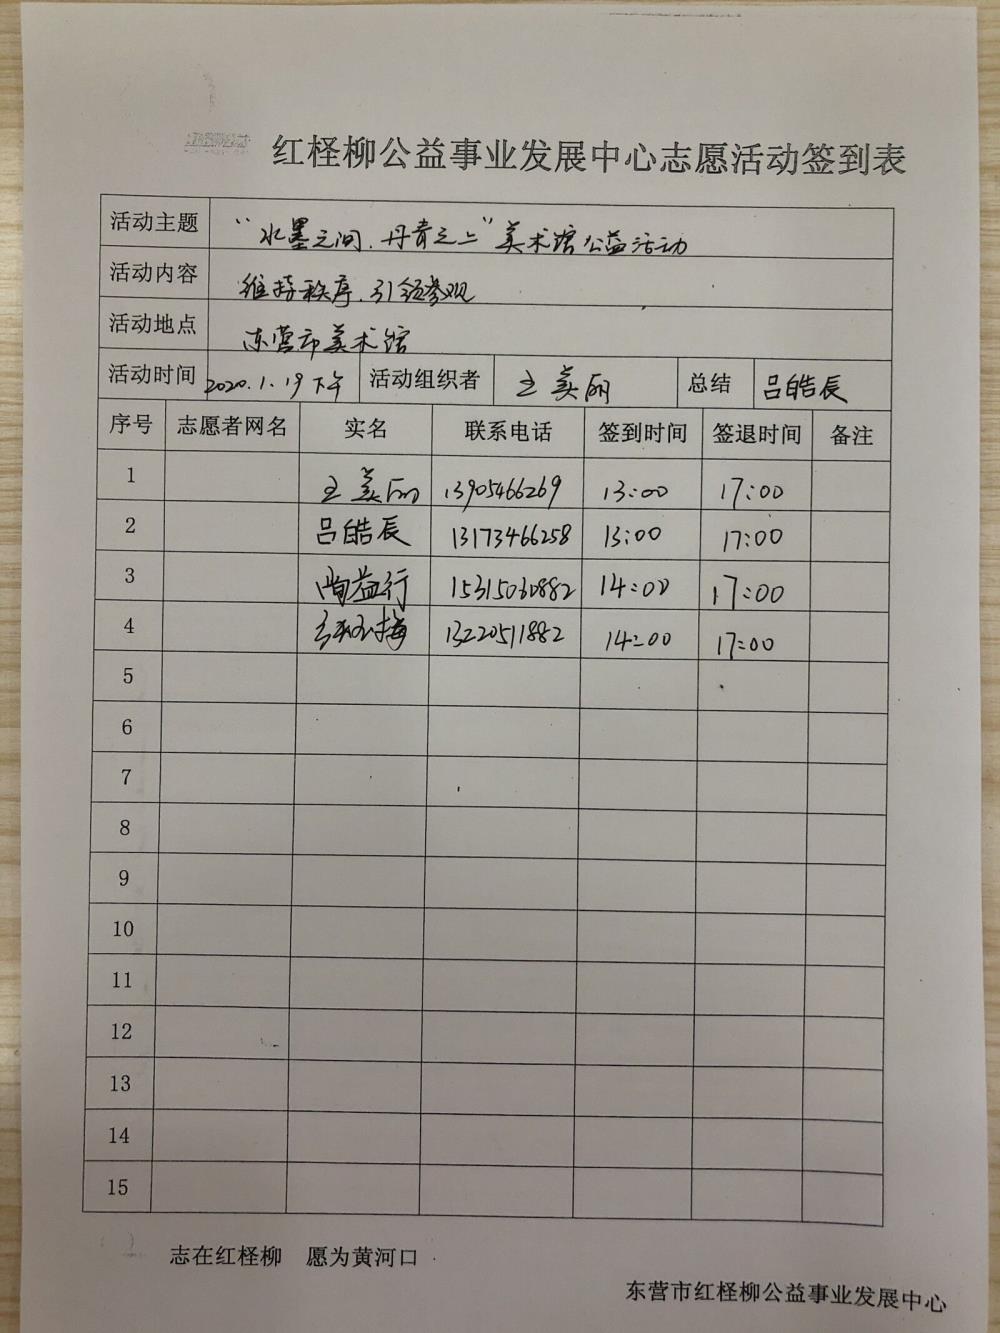 红柽柳公益事业发展中心志愿活动签到表
活动主题 “水墨之间.丹青之上”美术馆公益活动
活动内容 维持秩序.引领参观
活动地点 东营市美术馆
活动时间 2020.1.19下午 活动组织者 王美丽 总结 吕皓辰
序号 志愿者网名 实名 联系电话 签到时间 签退时间 备注
1 王美丽 13905466269 13:00 17:00
2 吕皓辰 13173466258 13:00 17:00
3 益行 15315030882 14:00 17:00
4 梅 13220511882 14:00 17:00
5
6
7
8
9
10
11
12
13
14
15
志在红柽柳 愿为黄河口
东营市红柽柳公益事业发展中心